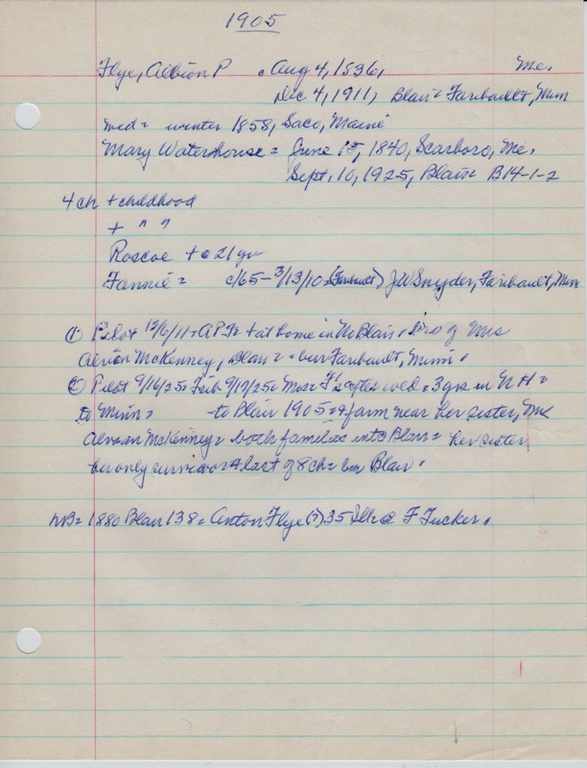 1905
Flye, Albion P Aug 4, 1836, Me.
Dec 4, 1911, Blair = Faribault, Minn
med = winter 1858, Saco, Maine
Mary Waterhouse = June 15, 1840, Scarboro, Me.
Sept. 10, 1925, Blair = B14-1-2
4 ch + childhood
+ " "
Roscoe + @ 21 yr
Fannie = c/65 - 3/13/10 (Faribault) J W Snyder, Faribault, Minn
① Pilot 12/6/11 = A P F = + at home in No Blair, bro of Mrs
McKenney, Blair = bur Faribault, Minn.
② Pilot 9/16/25 9/17/25 Mrs = Fl after wed = 3 yrs in N H =
to Minn = - to Blair 1905 = farm near her sister, Mrs
McKenney = both families into Blair = her sister
her only survivor = last of 8 ch = bur Blair.
NB = 1880 Blair 138 = Anton Flye (?) 35 @ F Tucker.